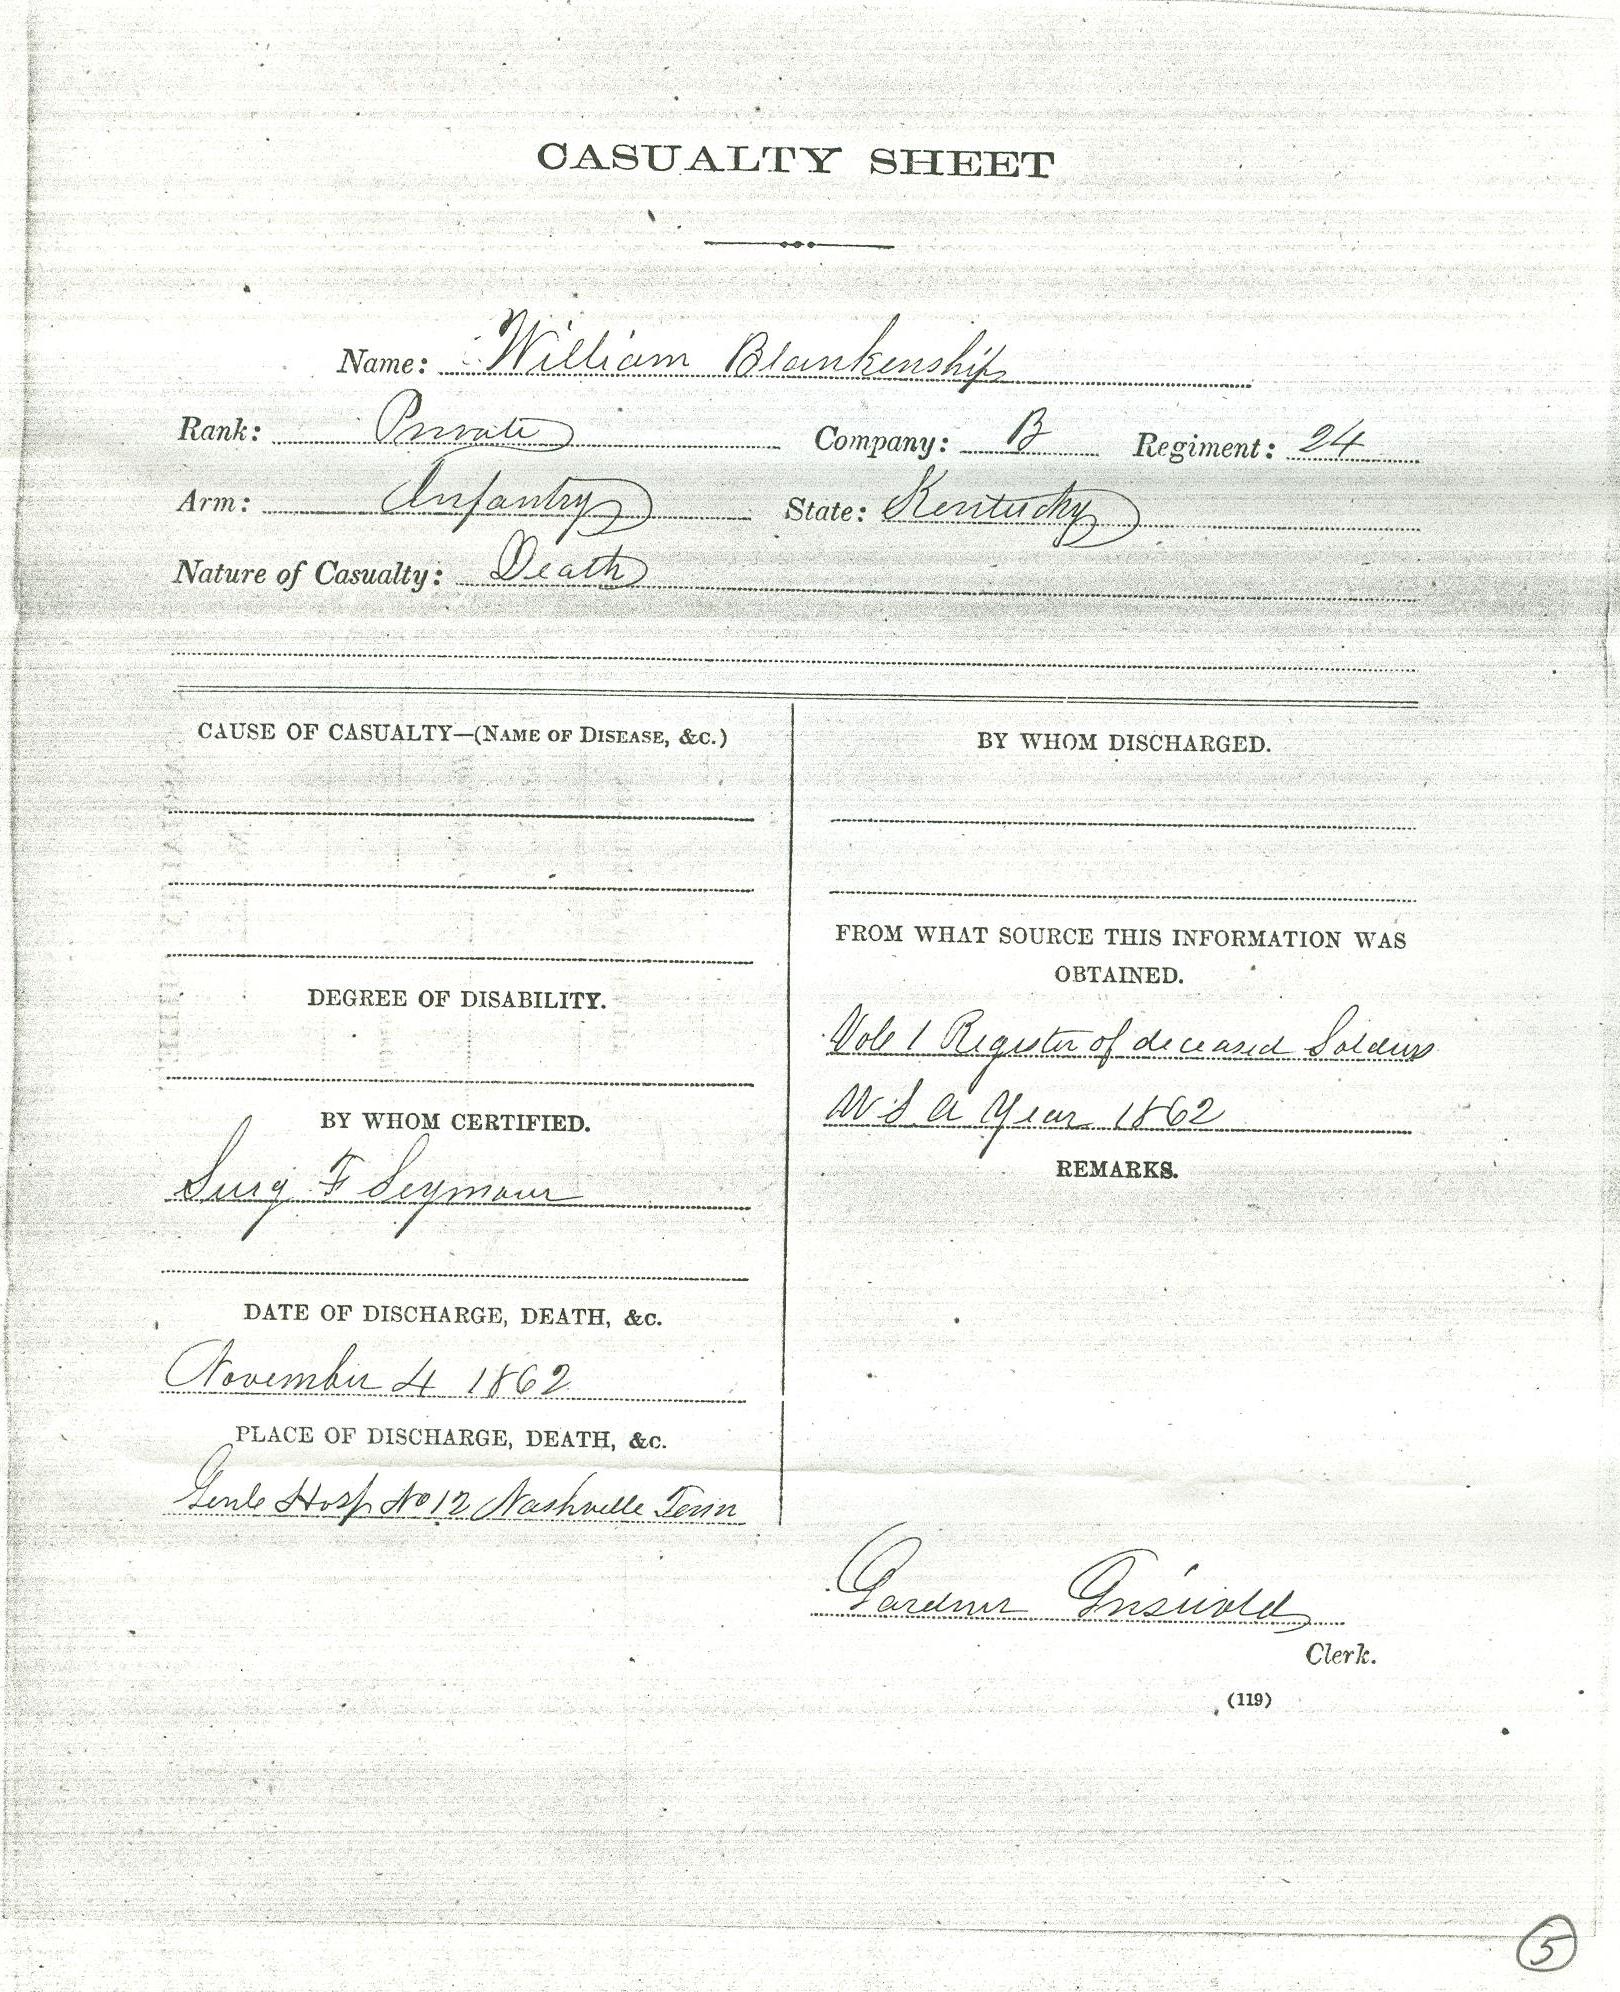 CASUALTY SHEET
Name: William Blankenship
Rank: Private Company: B Regiment: 24
Arm: Infantry State: Kentucky
Nature of Casualty: Death
CAUSE OF CASUALTY—(NAME OF DISEASE, &c.)
DEGREE OF DISABILITY.
BY WHOM CERTIFIED.
Surg F Seymour
DATE OF DISCHARGE, DEATH, &c.
November 4 1862
PLACE OF DISCHARGE, DEATH, &c.
Genl Hosp No 12 Nashville Tenn
BY WHOM DISCHARGED.
FROM WHAT SOURCE THIS INFORMATION WAS
OBTAINED.
Vol 1 Register of deceased Soldiers
U S A Year 1862
REMARKS.
Gardner Griswold
Clerk.
(119)
5